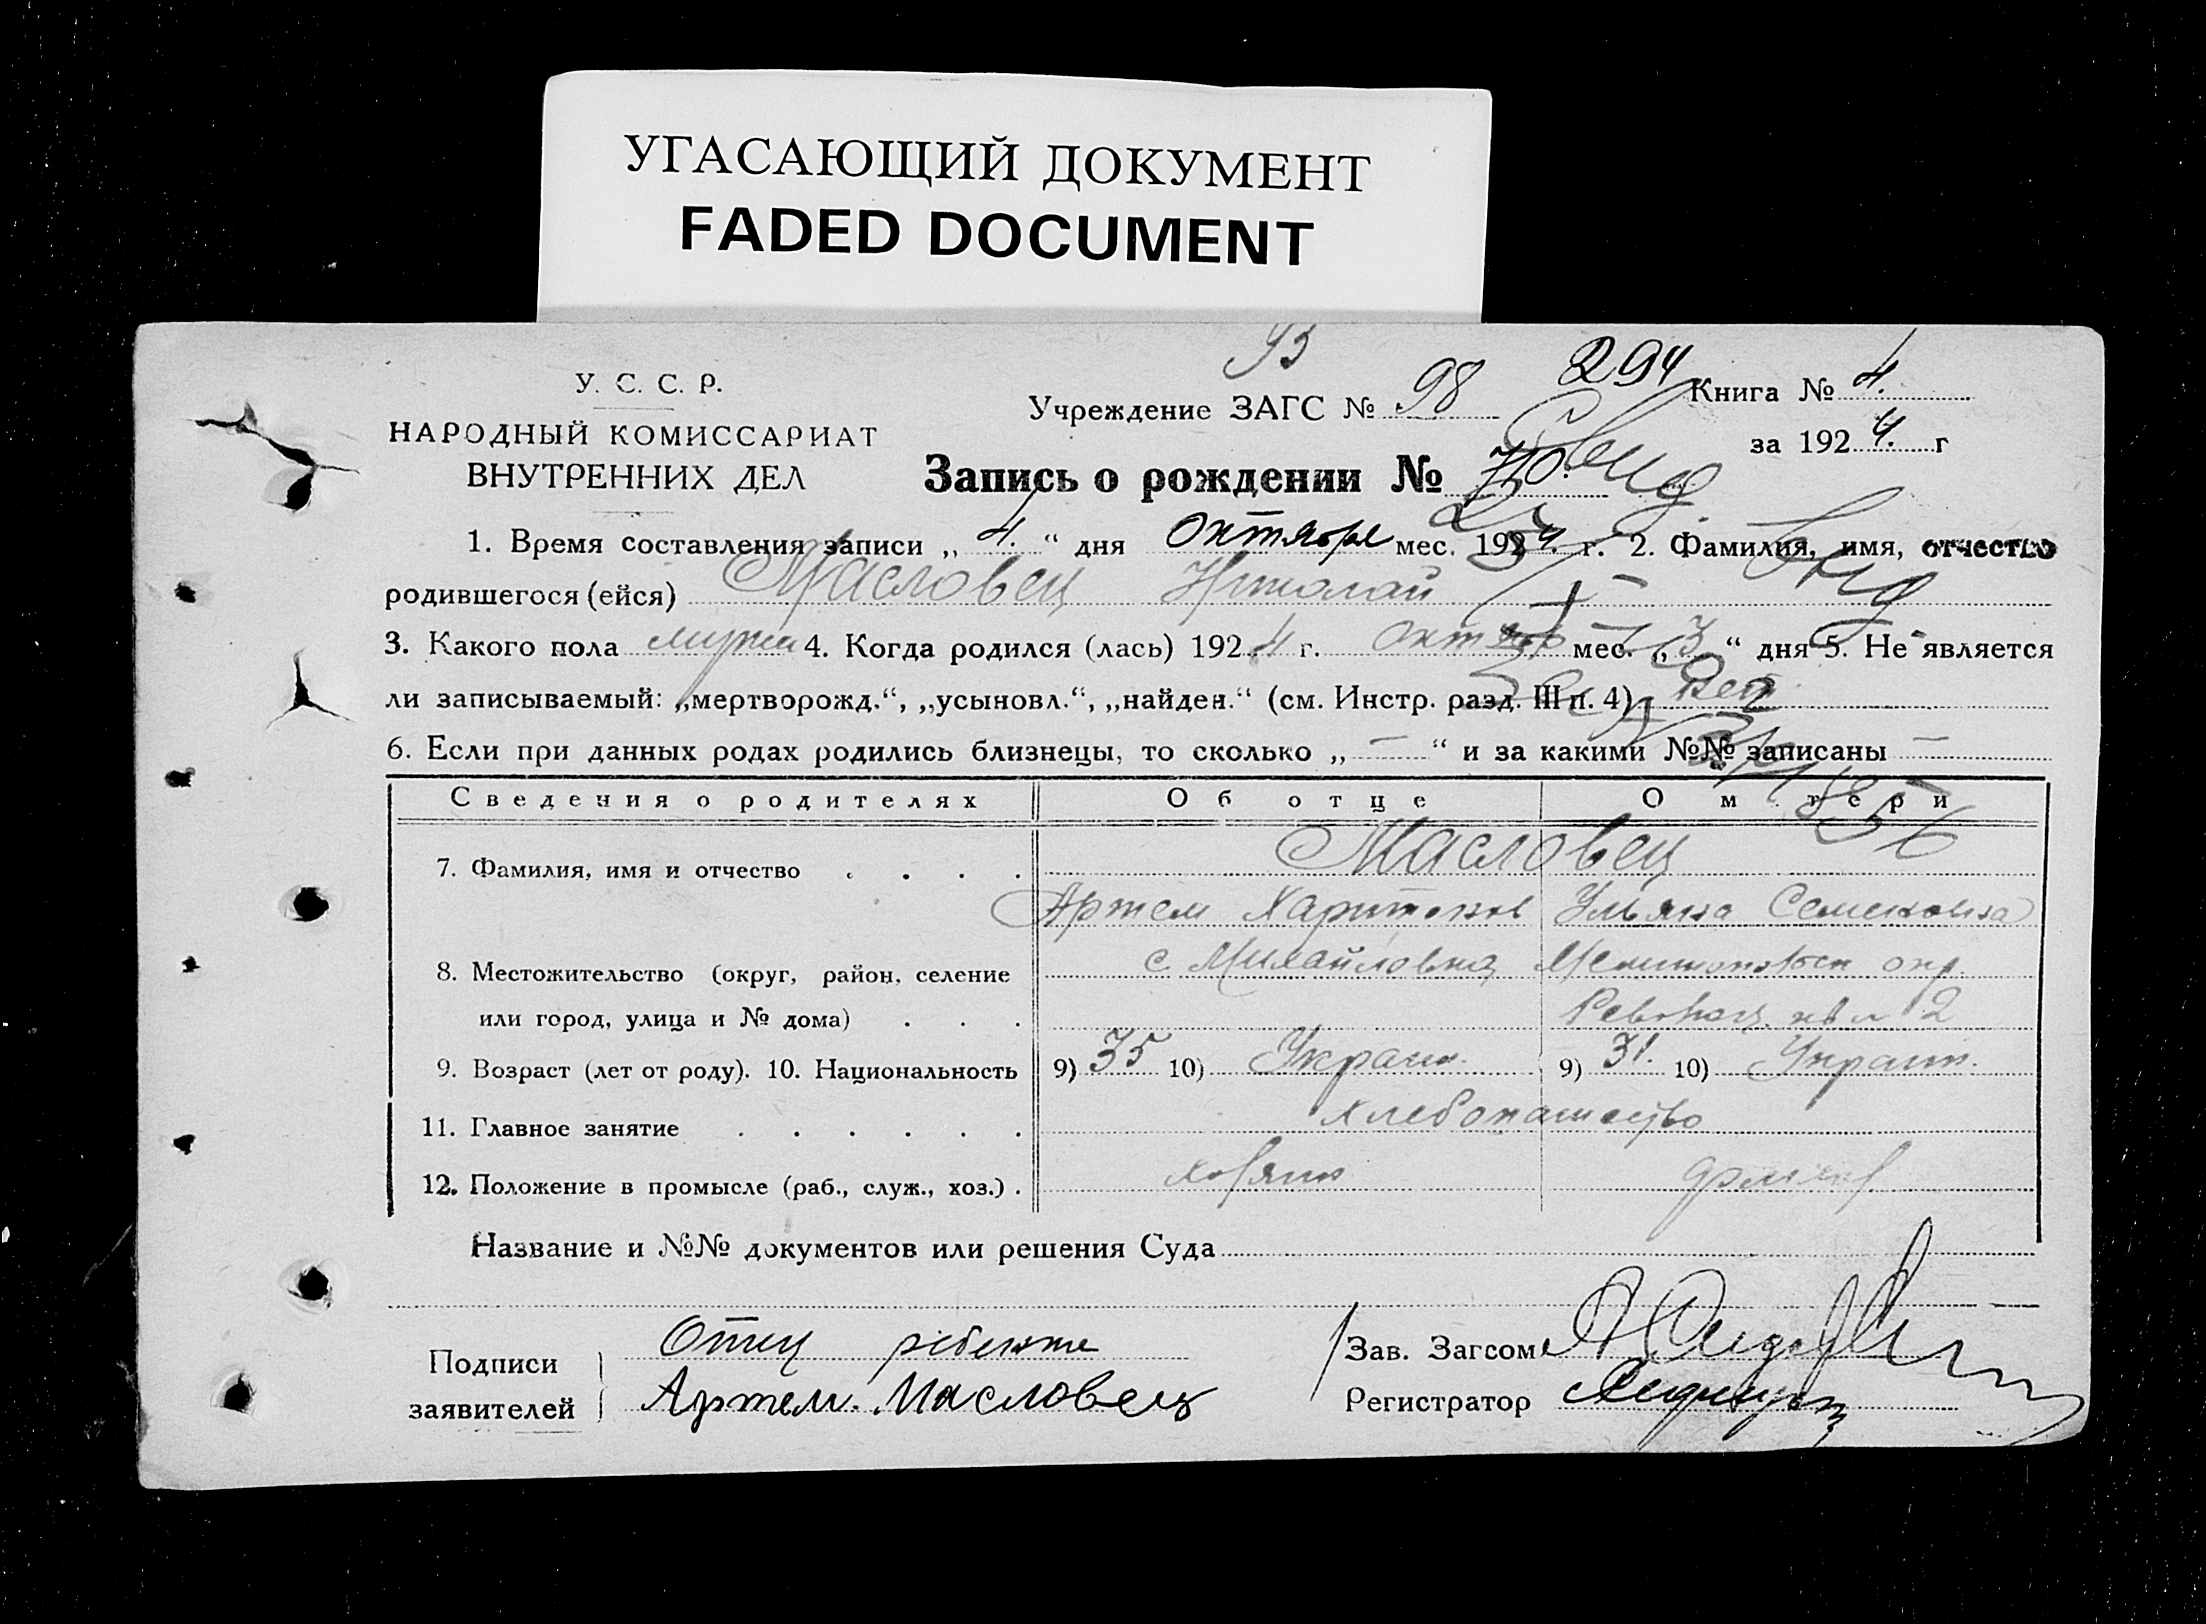 УГАСАЮЩИЙ ДОКУМЕНТ
FADED DOCUMENT
93
У. С. С. Р.
НАРОДНЫЙ КОМИССАРИАТ
ВНУТРЕННИХ ДЕЛ
Учреждение ЗАГС № 98 294 Книга № 4.
за 1924. г
Запись о рождении №
1. Время составления записи „ 4. “ дня Октября мес. 1924. г. 2. Фамилия, имя, отчество
родившегося (ейся) Масловец Николай
3. Какого пола мужск 4. Когда родился (лась) 1924 г. Октяб мес. „ 3 “ дня 5. Не является
ли записываемый: „мертворожд.“, „усыновл.“, „найден.“ (см. Инстр. разд. III п. 4)
6. Если при данных родах родились близнецы, то сколько „ — “ и за какими №№ записаны —
Сведения о родителях Об отце О м тери
7. Фамилия, имя и отчество . . . . Масловец
Артем Харитонов Ульяна Семеновна
8. Местожительство (округ, район, селение с. Михайловка Мелитопольск окр.
или город, улица и № дома) . . . 2
9. Возраст (лет от роду). 10. Национальность 9) 35 10) Украин. 9) 31. 10) Украин.
11. Главное занятие . . . . . . Хлебопашество
12. Положение в промысле (раб., служ., хоз.) . хозяин
Название и №№ документов или решения Суда
Подписи заявителей Отец ребенка
Артем. Масловец
Зав. Загсом
Регистратор